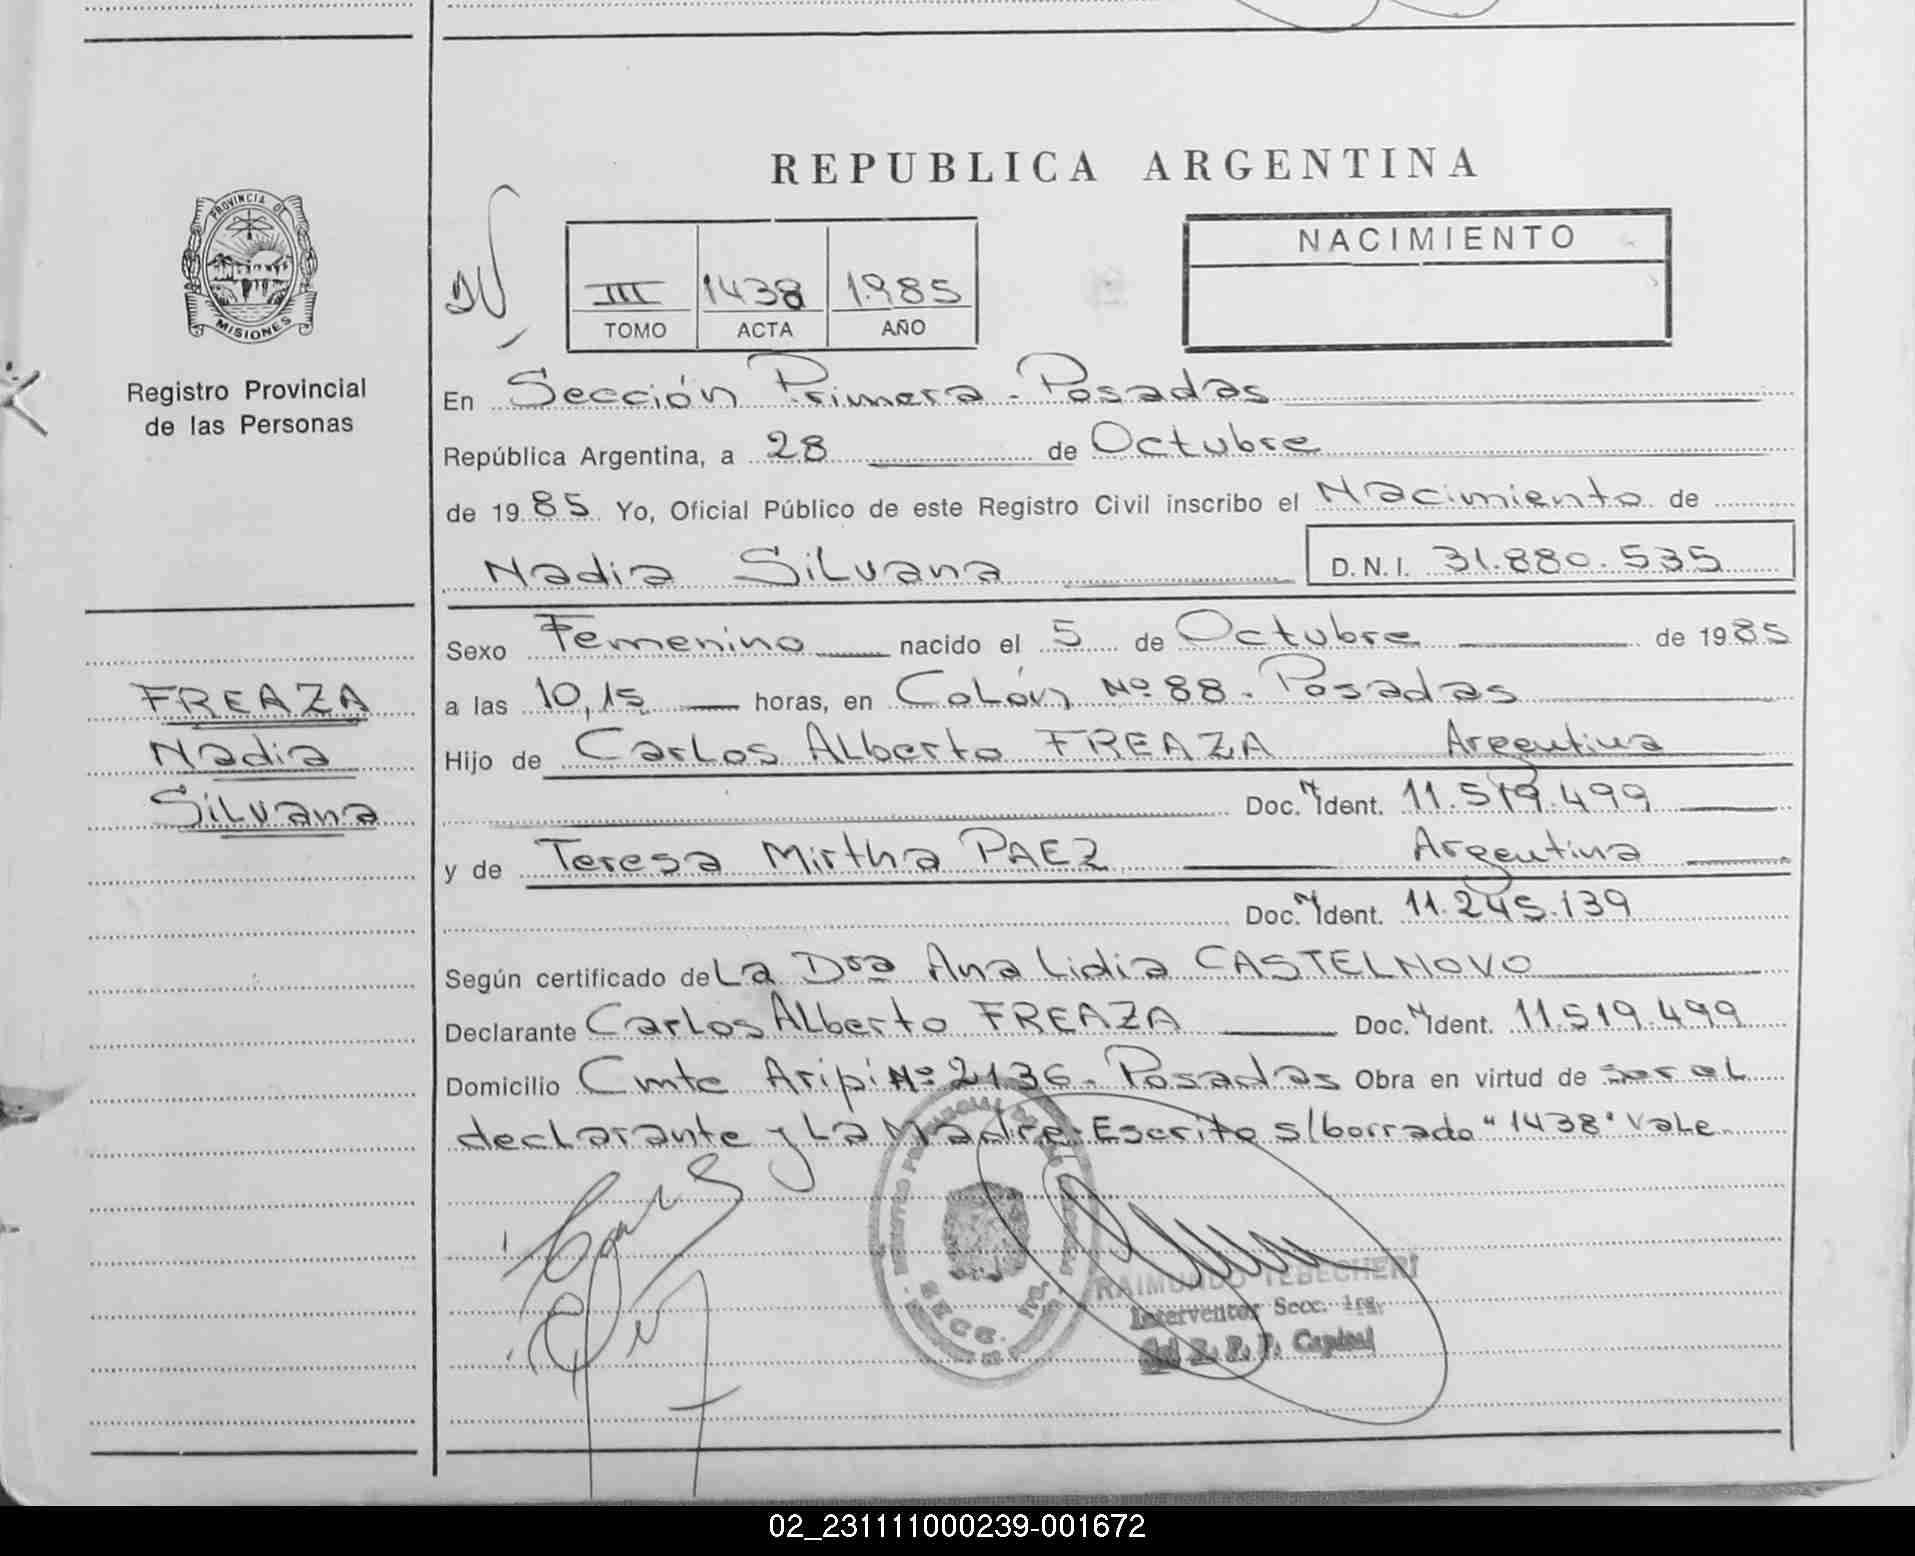 REPUBLICA ARGENTINA
PROVINCIA DE
MISIONES
Registro Provincial
de las Personas
III 1438 1.985
TOMO ACTA AÑO
NACIMIENTO
En Sección Primera - Posadas
República Argentina, a 28 de Octubre
de 1985 Yo, Oficial Público de este Registro Civil inscribo el Nacimiento de
Nadia Silvana D.N.I. 31.880.535
Sexo Femenino nacido el 5 de Octubre de 1985
FREAZA
Nadia
Silvana
a las 10,15 horas, en Colón Nº 88 - Posadas
Hijo de Carlos Alberto FREAZA Argentina
Doc. N Ident. 11.519.499
y de Teresa Mirtha PAEZ Argentina
Doc. N Ident. 11.245.139
Según certificado de La Dra Ana Lidia CASTELNOVO
Declarante Carlos Alberto FREAZA Doc. N Ident. 11.519.499
Domicilio Cmte Aripí Nº 2136 - Posadas Obra en virtud de ser el
declarante y La Madre - Escrito s/borrado "1438" Vale
RAIMUNDO TEBECHERI
Interventor Secc. 1ra.
Capital
02_231111000239-001672